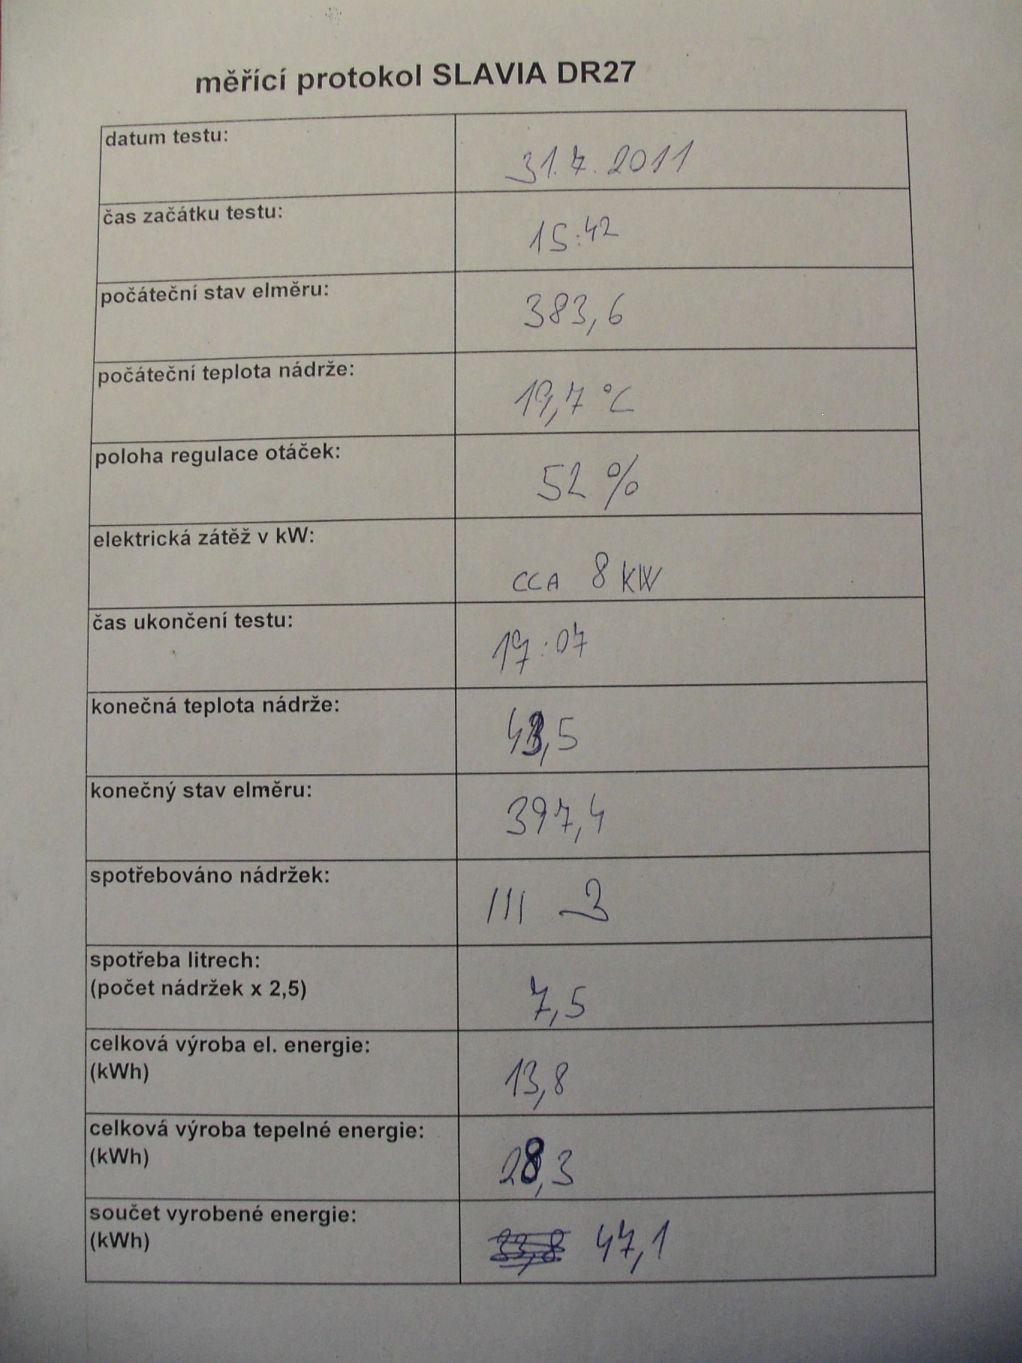 měřící protokol SLAVIA DR27
datum testu: 31.7.2011
čas začátku testu: 15:42
počáteční stav elměru: 383,6
počáteční teplota nádrže: 19,7 °C
poloha regulace otáček: 52 %
elektrická zátěž v kW: CCA 8 KW
čas ukončení testu: 17:07
konečná teplota nádrže: 43,5
konečný stav elměru: 397,4
spotřebováno nádržek: III 3
spotřeba litrech:
(počet nádržek x 2,5) 7,5
celková výroba el. energie:
(kWh) 13,8
celková výroba tepelné energie:
(kWh) 28,3
součet vyrobené energie:
(kWh) 47,1